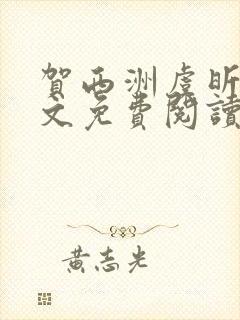 賀西洲虞昕
文免費閱讀
黃志光